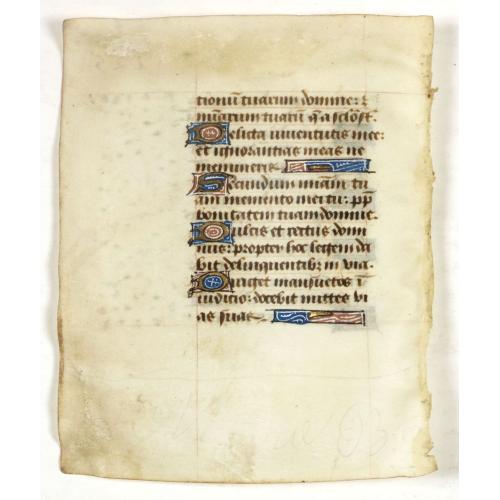 tionū tuarum domine: ⁊
miãrum tuarū q̄ a sclō st.
Delicta iuventutis mee:
et ignorantias meas ne
memineris.
Secundum miãm tu
am memento mei tu: pp
bonitatem tuam domine.
Dulcis et rectus domi
nus: propter hoc legem da
bit delinquentibꝫ in via.
Diriget mansuetos ī
iudicio: docebit mittes vi
as suas.